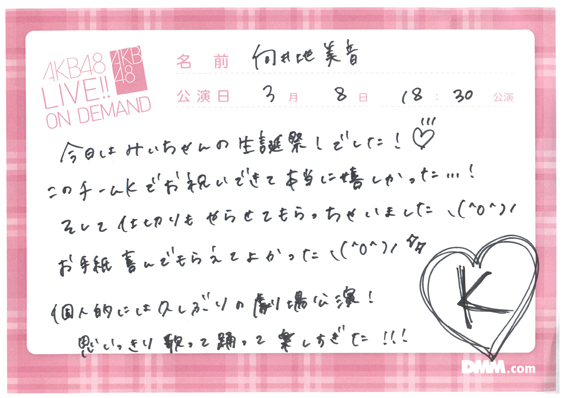 AKB48
LIVE!!
ON DEMAND
AKB
48
名前 向井地美音
公演日 3月 8日 18:30 公演
今日はみぃちゃんの生誕祭しでした!♡
このチームKでお祝いできて本当に嬉しかった…!
そして仕切りもやらせてもらっちゃいました\(^o^)/
お手紙喜んでもらえてよかった\(^o^)/
個人的には久しぶりの劇場公演!
思いっきり歌って踊って楽しすぎた!!!
K
DMM.com